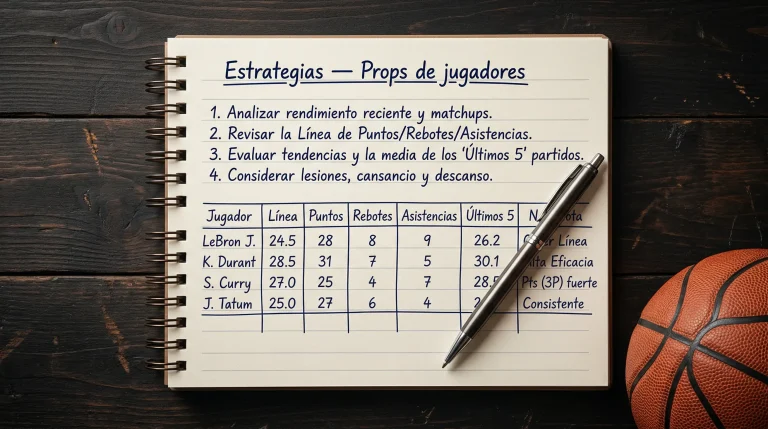 Estrategias — Props de jugadores
1. Analizar rendimiento reciente y matchups.
2. Revisar la Línea de Puntos/Rebotes/Asistencias.
3. Evaluar tendencias y la media de los 'Últimos 5' partidos.
4. Considerar lesiones, cansancio y descanso.
Jugador Línea Puntos Rebotes Asistencias Últimos 5
LeBron J. 24.5 28 8 9 26.2 Línea
K. Durant 28.5 31 7 5 30.1 Eficacia
S. Curry 27.0 25 4 7 Pts (3P) fuerte
J. Tatum 25.0 27 6 4 Consistente